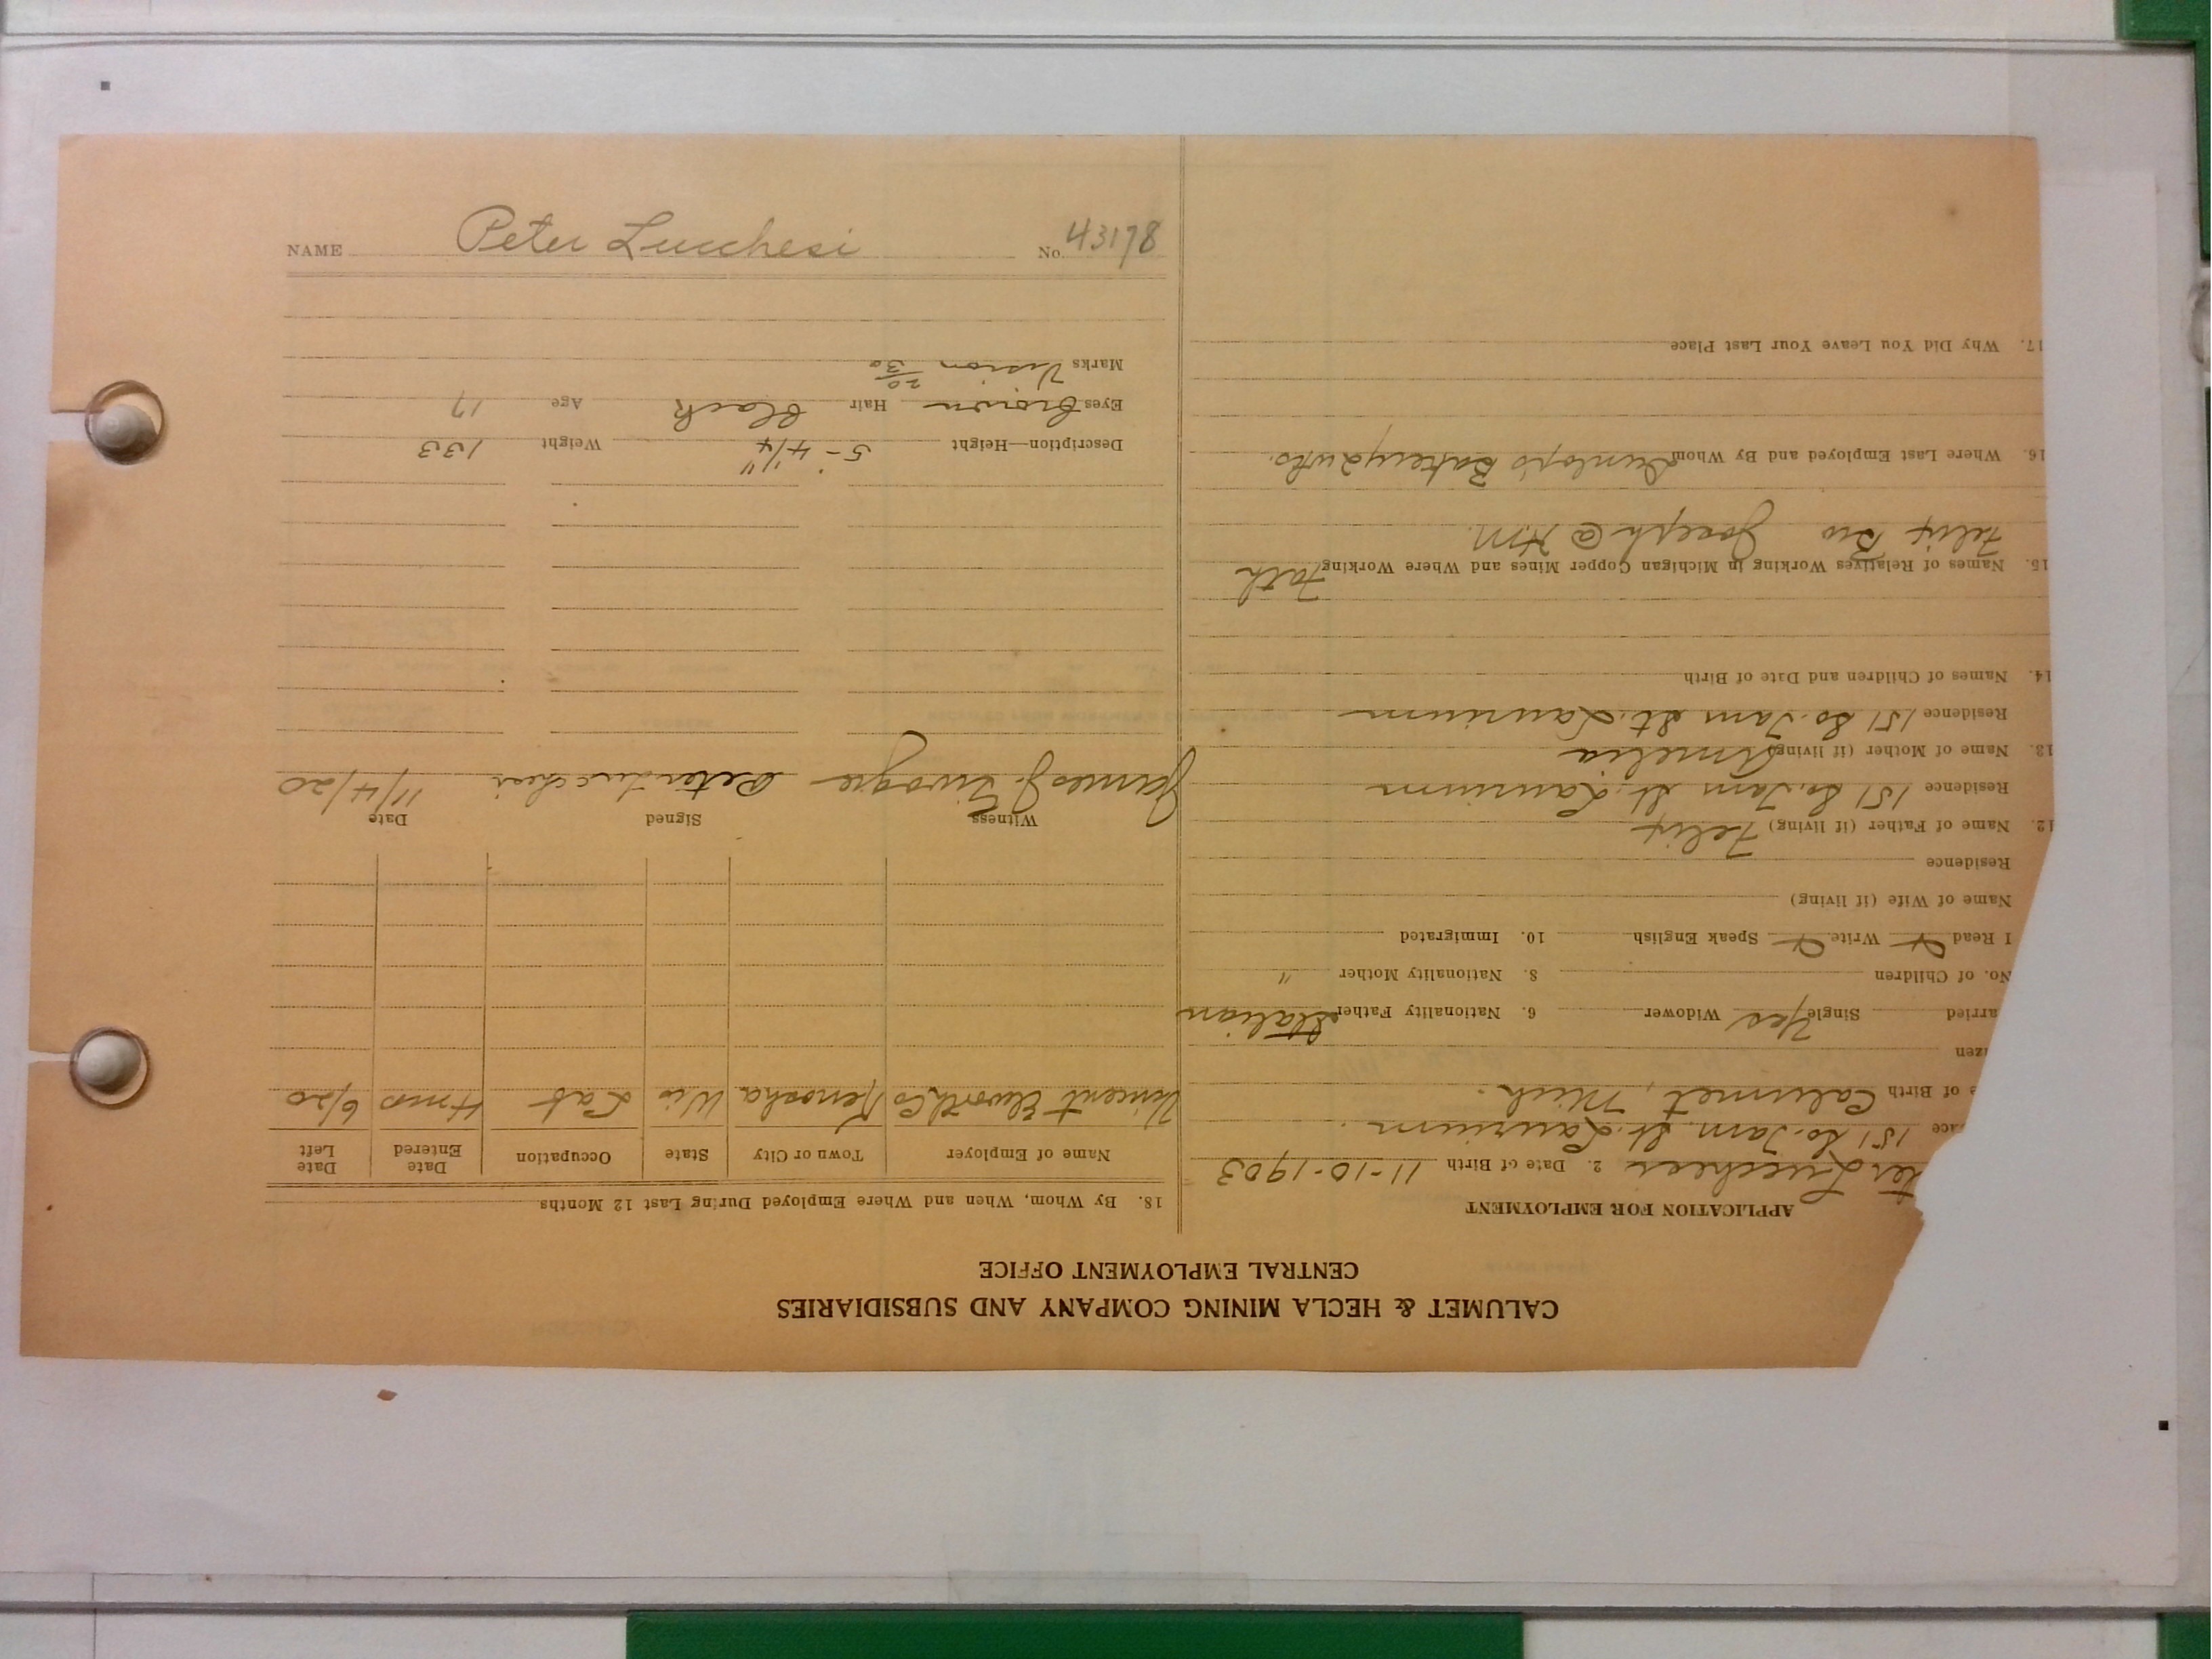 NAME Peter Lucchesi No. 43178
CALUMET & HECLA MINING COMPANY AND SUBSIDIARIES
CENTRAL EMPLOYMENT OFFICE
APPLICATION FOR EMPLOYMENT
ter Lucchesi 2. Date of Birth 11-10-1903
ace 151 So. Tam. St. Laurium.
e of Birth Calumet, Mich.
izen
arried Single Yes Widower 6. Nationality Father Italian
No. of Children 8. Nationality Mother "
I Read Write Speak English 10. Immigrated
Name of Wife (if living)
Residence
12. Name of Father (if living) Felix
Residence 151 So. Tam St. Laurium
13. Name of Mother (if living) Amelia
Residence 151 So. Tam St. Laurium
14. Names of Children and Date of Birth
15. Names of Relatives Working in Michigan Copper Mines and Where Working Fath
Felix Bro Joseph @ Hm.
16. Where Last Employed and By Whom Dunlop's Bakery
17. Why Did You Leave Your Last Place
18. By Whom, When and Where Employed During Last 12 Months
Name of Employer Town or City State Occupation Date Entered Date Left
Vincent Co Kenosha Wis Lab 4 mos 6/20
Witness Signed Date
James J. Peter Lucchesi 11/4/20
Description—Height 5'-4 1/4" Weight 133
Eyes Brown Hair Black Age 17
Marks Vision 20/30